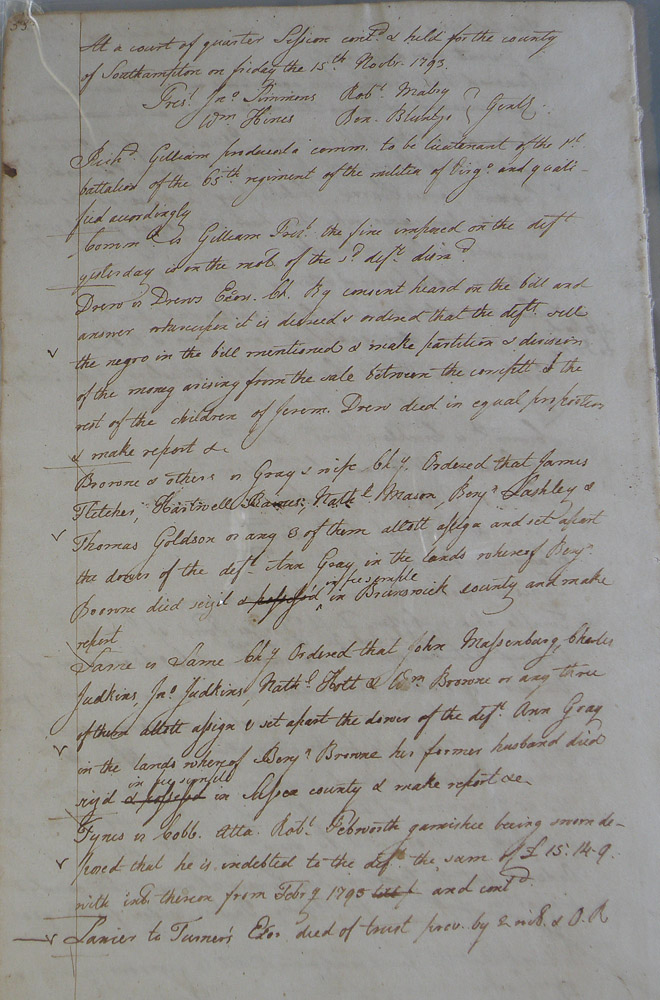 At a court of quarter Session contd & held for the county
of Southampton on friday the 15th Novbr. 1793.
Prest Jno Simmons Robt Mabry
Wm Hines Ben. Blunt Gentl.
Richd Gilliam produced a comm. to be lieutenant of the 1st
battalion of the 65th regiment of the militia of Virga and quali-
fied accordingly
Comm vs Gilliam Prest. the fine imposed on the deft
yesterday is on the mot. of the sd deft. dism'd
Drew vs Drews Exors. Ch. By consent heard on the bill and
answer whereupon it is decreed & ordered that the deft. sell
the negro in the bill mentioned & make partition & division
of the money arising from the sale between the complt & the
rest of the children of Jerem. Drew died in equal proportion
& make report &c
Browne & others vs Gray & wife Chy. Ordered that James
Fletcher, Hartwell Nathl Mason, Benja Lashley &
Thomas Goldson or any 3 of them allott assign and set apart
the dower of the deft. Ann Gray in the lands whereof Benja
in fee simple
Browne died seiz'd & possessed in Brunswick county and make
report
Same vs Same Chy Ordered that John Massenburg, Charles
Judkins, Jno Judkins, Nathl Holt & Wm Browne or any three
of them allott assign & set apart the dower of the deft. Ann Gray
in the lands whereof Benja Browne her former husband died
in fee simple
siz'd & possessed in Sussex county & make report &c
Tynes vs Cobb. Atta. Robt Tebworth garnishee being sworn de-
posed that he is indebted to the deft the sum of £ 15. 14. 9.
with int. thereon from Feby 1793 and contd.
Lanier to Turner's Exor died of trust prov. by 2 wits. & O. R